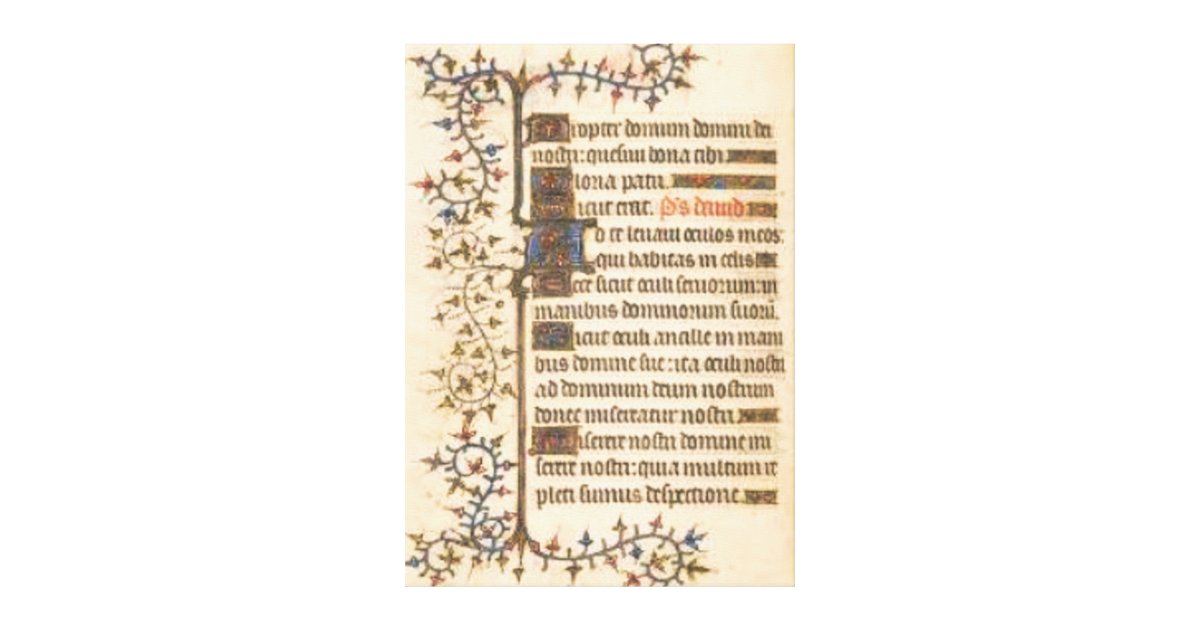 Propter domum domini dei
nostri: quesiui bona tibi
Gloria patri.
Sicut erat. Ps dauid
Ad te leuaui oculos meos:
qui habitas in celis
Ecce sicut oculi seruorum: in
manibus dominorum suorū.
Sicut oculi ancille in mani
bus domine sue: ita oculi nostri
ad dominum deum nostrum
donec misereatur nostri
Miserere nostri domine mi
serere nostri: quia multum re
pleti sumus despectione